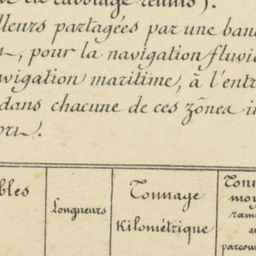 de cabotage réunis).
lleurs partagées par une ban
, pour la navigation fluvi
vigation maritime, à l'entr
dans chacune de ces zônes i
bles
Longueurs
Tonnage
Kilométrique
Tonn
moy
ram
parcour